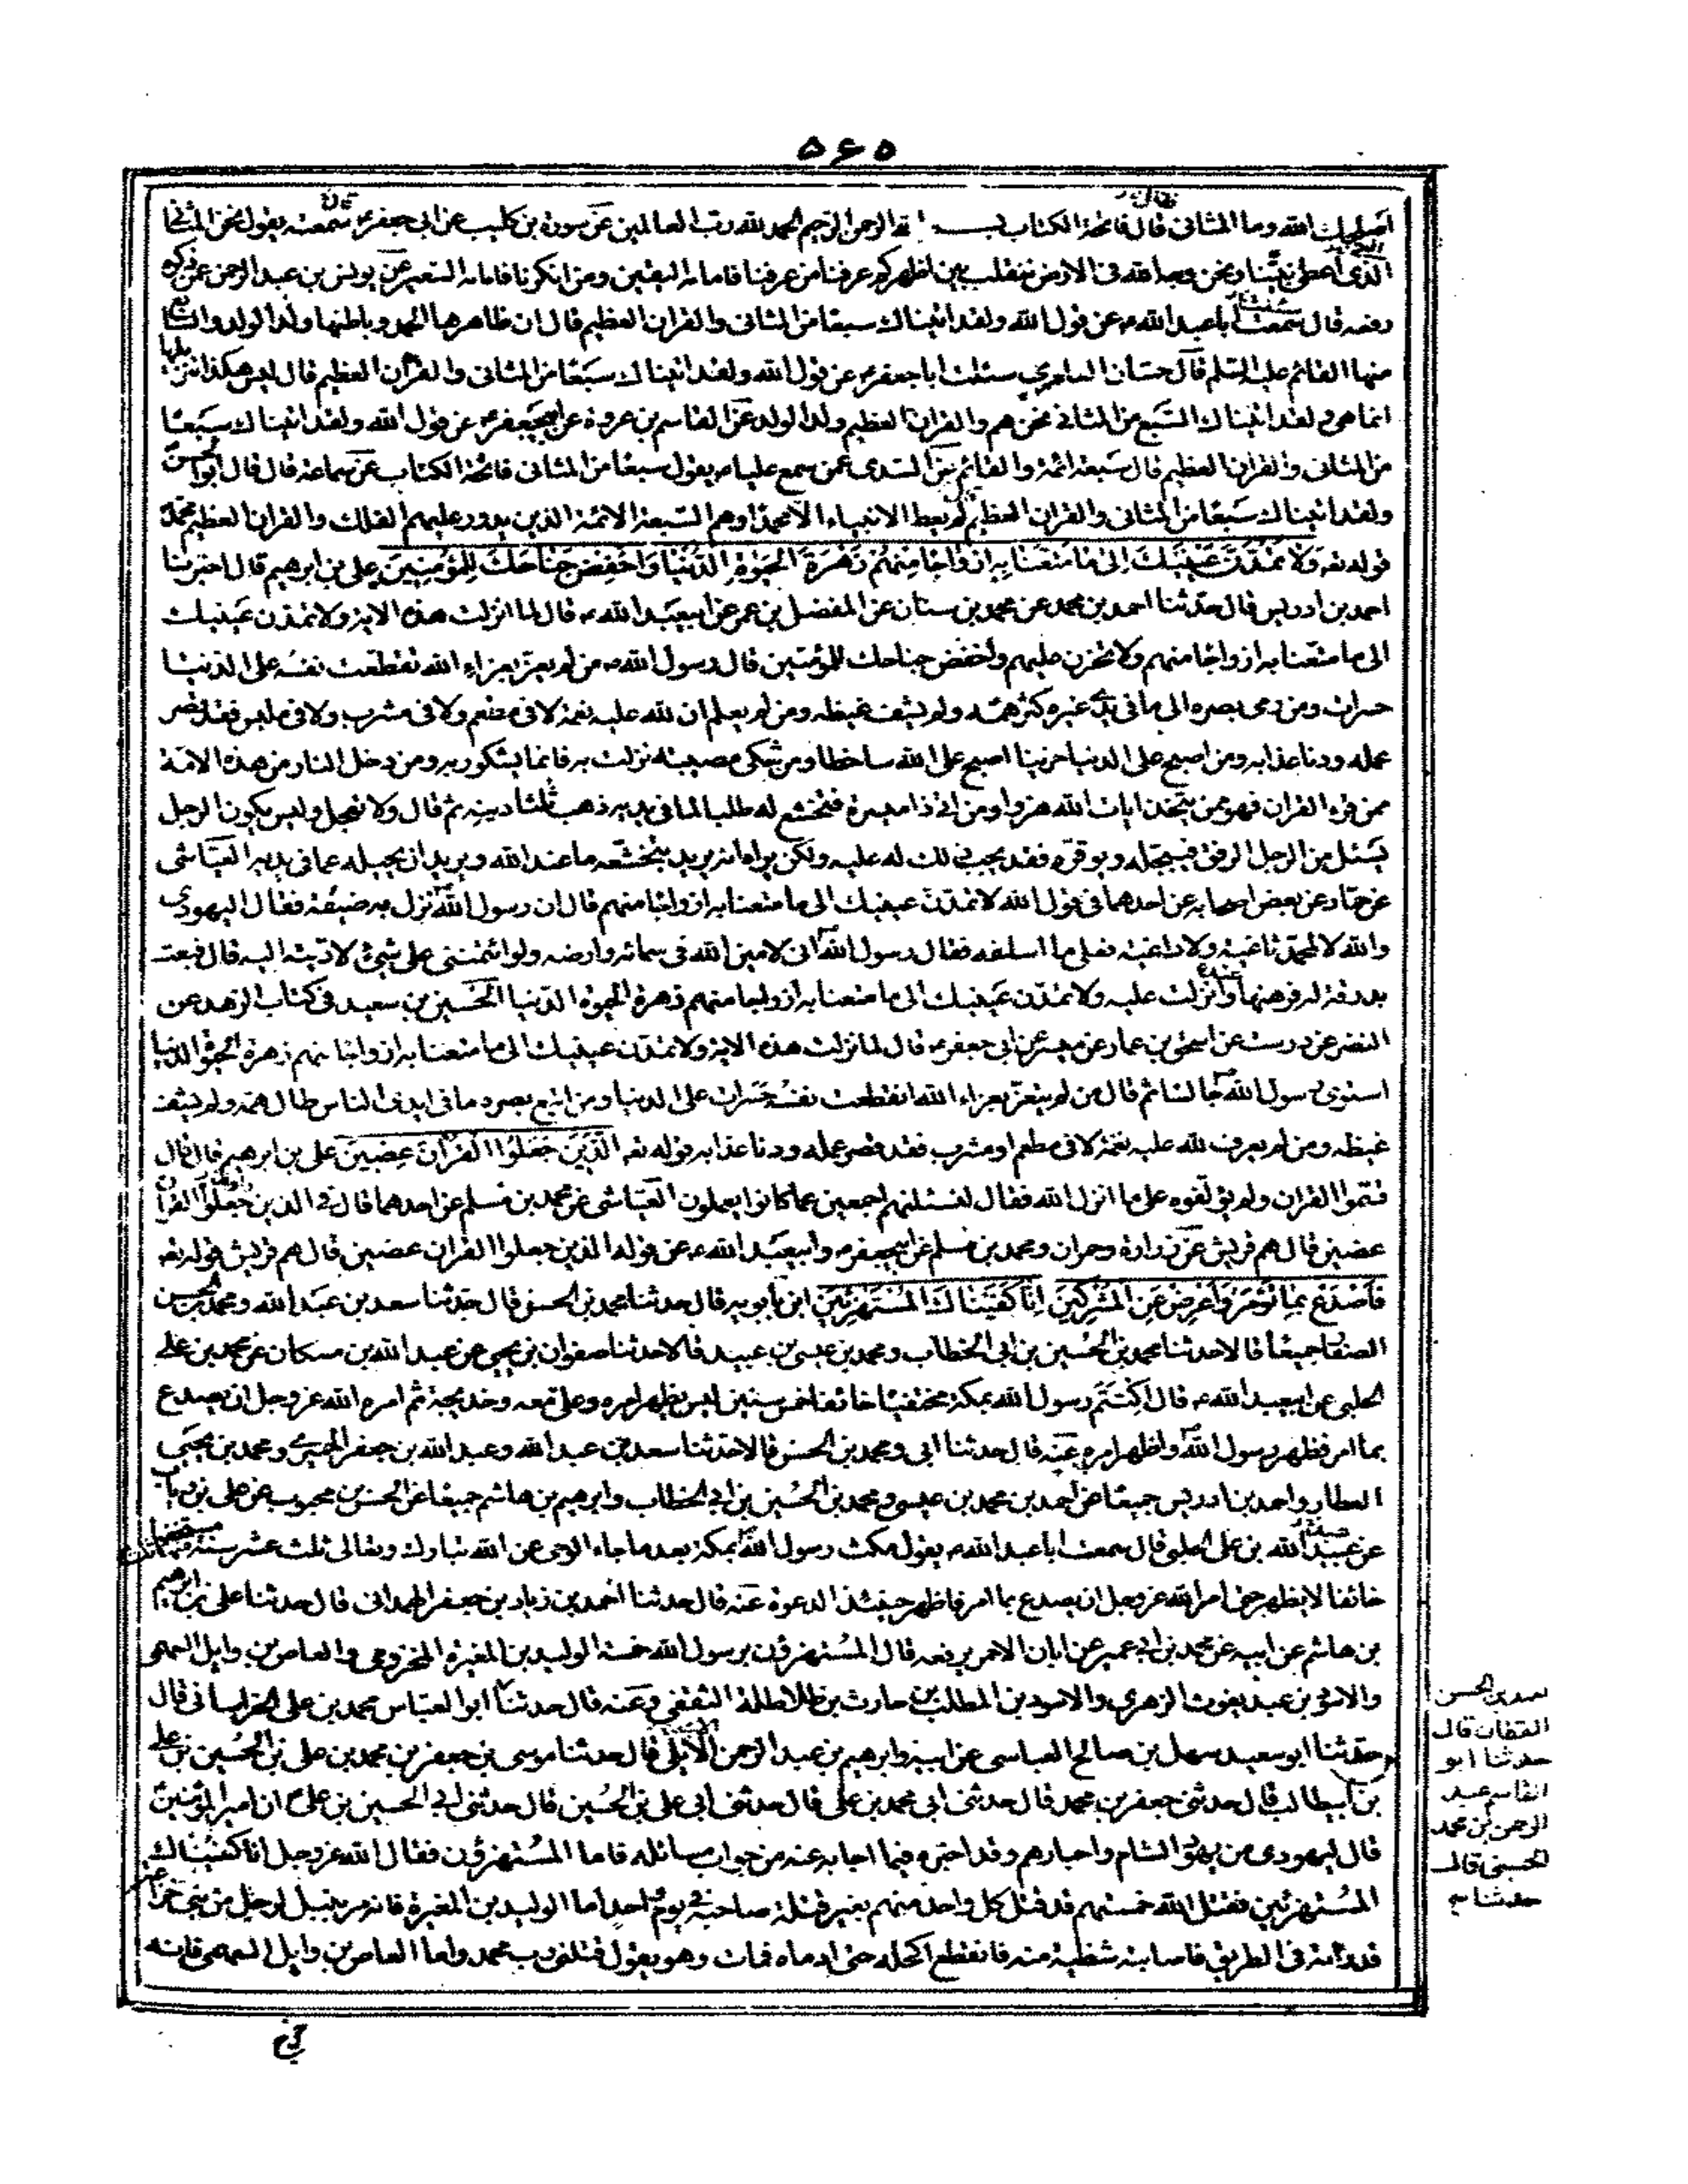 ۵۶۵
اصلحك الله وما المثانى قال فاتحة الكتاب بسـم الله الرحمن الرحيم الحمد لله رب العالمين عن سورة بن كليب عن ابى جعفر ع قال سمعته يقول نحن المثانى
الذى اعطى نبينا ونحن وجه الله فى الارض نتقلب بين اظهركم عرفنا من عرفنا فامامه اليقين ومن انكرنا فامامه السعير عن يونس بن عبد الرحمن عمن ذكره
رفعه قال سئلت ابا عبد الله ع عن قول الله ولقد اتيناك سبعا من المثانى والقران العظيم قال ان ظاهرها الحمد وباطنها ولد الولد والسابع
منها القائم عليه السلم قال حسان العامرى سئلت ابا جعفر ع عن قول الله ولقد اتيناك سبعا من المثانى والقرآن العظيم قال ليس هكذا تنزيلها
انما هى ولقد اتيناك السبع من المثانى نحن هم والقران العظيم ولد الولد عن القاسم بن عروة عن ابيجعفر ع عن قول الله ولقد اتيناك سبعا
من المثانى والقران العظيم قال سبعة ائمة والقائم عن السدى عمن سمع عليا ع يقول سبعا من المثانى فاتحة الكتاب عن سماعة قال قال ابو الحسن
ولقد اتيناك سبعا من المثانى والقران العظيم لم يعط الانبياء الا محمدا وهم السبعة الائمة الذين يدور عليهم الفلك والقران العظيم محمد
قوله تعه وَلا تَمُدَّنَّ عَيْنَيْكَ اِلى ما مَتَّعْنا بِه اَزْواجًا مِنْهُمْ زَهْرَةَ الْحَيٰوةِ الدُّنْيا وَاخْفِضْ جَناحَكَ لِلْمُؤْمِنينَ على بن ابرهيم قال اخبرنا
احمد بن ادريس قال حدثنا احمد بن محمد عن محمد بن سنان عن المفضل بن عمر عن ابيعبد الله ع قال لما نزلت هذه الاية ولا تمدن عينيك
الى ما متعنا به ازواجا منهم ولا تحزن عليهم واخفض جناحك للمؤمنين قال رسول الله ص من لم يتعز بعزاء الله تقطعت نفسه على الدنيا
حسرات ومن رمى بصره الى ما فى يد غيره كثر همه ولم يشف غيظه ومن لم يعلم ان لله عليه نعمة لا فى مطعم ولا فى مشرب ولا فى ملبس فقد قصر
عمله ودنا عذابه ومن اصبح على الدنيا حزينا اصبح على الله ساخطا ومن شكى مصيبة نزلت به فانما يشكو ربه ومن دخل النار من هذه الامة
ممن قرء القران فهو ممن يتخذ ايات الله هزوا ومن اتى ذا ميسرة فتخشع له طلب لما فى يديه ذهب ثلثا دينه ثم قال ولا تعجل وليس يكون الرجل
يسئل من الرجل الرفق فيبجله ويوقره فقد يجب ذلك له عليه ولكن يراه انه يريد بتخشعه ما عند الله ويريد ان يحيله عما فى يديه العياشى
عن حماد عن بعض اصحابه عن احدهما فى قول الله لا تمدن عينيك الى ما متعنا به ازواجا منهم قال ان رسول الله ص نزل به ضيقة فقال اليهودى
والله لا لمحمد ثاغية ولا راغية فعلى ما اسلفه فقال رسول الله ص انى لامين الله فى سمائه وارضه ولو ائتمننى على شيئ لاديته اليه قال فبعث
بدرقة له فرهنها عنده وانزلت عليه ولا تمدن عينيك الى ما متعنا به ازواجا منهم زهرة الحيوة الدنيا الحسين بن سعيد فى كتاب الزهد عن
النضر عن درست عن اسحق بن عمار عن ميسر عن ابى جعفر ع قال لما نزلت هذه الاية ولا تمدن عينيك الى ما متعنا به ازواجا منهم زهرة الحيوة الدنيا
استوى رسول الله ص جالسا ثم قال من لم يتعز بعزاء الله انقطعت نفسه حسرات على الدنيا ومن اتبع بصره ما فى ايدى الناس طال همه ولم يشف
غيظه ومن لم يعرف لله عليه نعمة لا فى مطعم او مشرب فقد قصر عمله ودنا عذابه قوله تعه الَّذينَ جَعَلُوا الْقُرْانَ عِضينَ على بن ابرهيم قال قال
قسموا القران ولم يؤلفوه على ما انزل الله فقال لنسئلنهم اجمعين عما كانوا يعملون العياشى عن محمد بن مسلم عن احدهما قال فى الذين جعلوا القرآن
عضين قال هم قريش عن زرارة وحمران ومحمد بن مسلم عن ابيجعفر ع وابيعبد الله ع عن قوله الذين جعلوا القران عضين قال هم قريش قوله تعه
فَاصْدَعْ بِما تُؤْمَرُ وَاَعْرِضْ عَنِ الْمُشْرِكينَ اِنّا كَفَيْناكَ الْمُسْتَهْزِئينَ ابن بابويه قال حدثنا محمد بن الحسن قال حدثنا سعد بن عبد الله ومحمد بن الحسن
الصفار جميعا قالا حدثنا محمد بن الحسين بن ابى الخطاب ومحمد بن عيسى بن عبيد قالا حدثنا صفوان بن يحيى عن عبد الله بن مسكان عن محمد بن على
الحلبى عن ابيعبد الله ع قال اكتتم رسول الله بمكة مختفيا خائفا خمس سنين ليس يظهر امره وعلى معه وخديجة ثم امره الله عز وجل ان يصدع
بما امر فظهر رسول الله ص واظهر امره عنه قال حدثنا ابى ومحمد بن الحسن قالا حدثنا سعد بن عبد الله وعبد الله بن جعفر الحميرى ومحمد بن يحيى
العطار واحمد بن ادريس جميعا عن احمد بن محمد بن عيسى ومحمد بن الحسين بن ابى الخطاب وابرهيم بن هاشم جميعا عن الحسن بن محبوب عن على بن رياب
عن عبيد الله بن على الحلبى قال سمعت ابا عبد الله ع يقول مكث رسول الله ص بمكة بعد ما جاءه الوحى عن الله تبارك وتعالى ثلث عشر سنة
خائفا لا يظهر حتى امره الله عز وجل ان يصدع بما امر فاظهر حينئذ الدعوة عنه قال حدثنا احمد بن زياد بن جعفر الهمدانى قال حدثنا على بن ابرهيم
بن هاشم عن ابيه عن محمد بن ابى عمير عن ابان الاحمر يرفعه قال المستهزؤن برسول الله خمسة الوليد بن المغيرة المخزومى والعاص بن وايل السهمى
والاسود بن عبد يغوث الزهرى والاسود بن المطلب بن حارث بن ظلاطلة الثقفى وعنه قال حدثنا ابو العباس محمد بن على الخراسانى قال
حدثنا ابو سعيد سهل بن صالح العباسى عن ابيه وابرهيم بن عبد الرحمن الأبلى قال حدثنا موسى بن جعفر بن محمد بن على بن الحسين بن على
بن ابيطالب قال حدثنى جعفر بن محمد قال حدثنى ابى محمد بن على قال حدثنى ابى على بن الحسين قال حدثنى ابى الحسين بن على ع ان امير المؤمنين
قال ليهودى من يهود الشام واحبارهم وقد اخبره فيما اجابه عنه من جواب مسائله فاما المستهزؤن فقال الله عز وجل انا كفيناك
المستهزئين فقتل الله خمستهم قد قتل كل واحد منهم بغير قتلة صاحبه فى يوم احد اما الوليد بن المغيرة فانه مر بنبل لرجل من بنى خزاعة
قد راشه فى الطريق فاصابته شظية منه فانقطع اكحله حتى ادماه فمات وهو يقول قتلنى رب محمد واما العاص بن وايل السهمى فانه
احمد بن الحسن
القطان قال
حدثنا ابو
القاسم عبد
الرحمن بن محمد
الحسينى قال
حدثنا